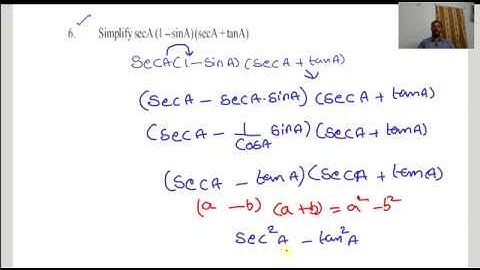 6. Simplify secA (1 – sinA) (secA + tanA)
SecA(1 - sinA) (secA + tanA)
(SecA - secA.sinA) (secA + tanA)
(SecA - 1/CosA sinA) (secA + tanA)
(secA - tanA) (secA + tanA)
(a - b) (a + b) = a² - b²
sec²A - tan²A